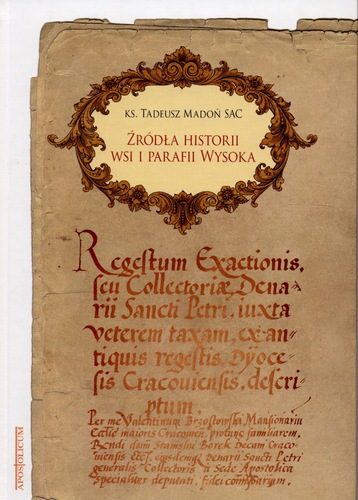 KS. TADEUSZ MADOŃ SAC
ŹRÓDŁA HISTORII
WSI I PARAFII WYSOKA
Regestum Exactionis,
seu Collectoriæ, Dena
rii Sancti Petri, iuxta
veterem taxam, ex an-
tiquis regestis, Dyoce-
sis Cracoviensis, descri-
ptum.
Per me Valentinum Brzostowski Mansionarium
Ecclie maioris Cracovien, protunc familiarem,
Rendi domi Stanislai Borek Decani Craco-
viensis etc., eiusdemq Denarii Sancti Petri
generalis Collectoris a Sede Apostolica
specialiter deputati, fidei comparum,
APOSTOLICUM